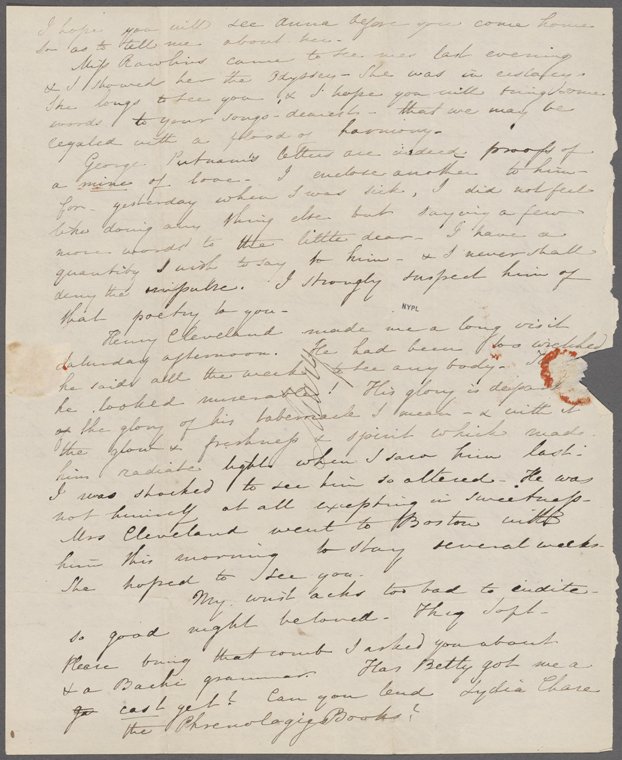 I hope you will see Anna before you come home
so as to tell me about her.
Miss Rawlins came to see me last evening
& I showed her the Odyssey - She was in ecstacy.
She longs to see you & I hope you will bring some
words to your songs - dearest - that we may be
regaled with a flood of harmony.
George Putnam's letters are indeed proofs of
a mine of love. I enclose another to him -
for yesterday when I was sick, I did not feel
like doing any thing else but saying a few
more words to the little dear - I have a
quantity I wish to say to him - & I never shall
deny the impulse. I strongly suspect him of
that poetry to you -
NYPL
Henry Cleveland made me a long visit
Saturday afternoon. He had been too wretched
he said all the week to see any body -
he looked miserable! His glory is depart
& the glory of his tabernacle I mean - & with it
the glow & freshness & spirit which made
him radiate light when I saw him last.
I was shocked to see him so altered - He was
not himself at all excepting in sweetness -
Mrs Cleveland went to Boston with
him this morning to stay several weeks
She hoped to see you.
My wrist acks too bad to indite -
so good night beloved - Thy Soph -
Please bring that comb I asked you about
& a Bachi grammar. Has Betty got me a
cast yet? Can you lend Lydia Chase
the Phrenologig Books?